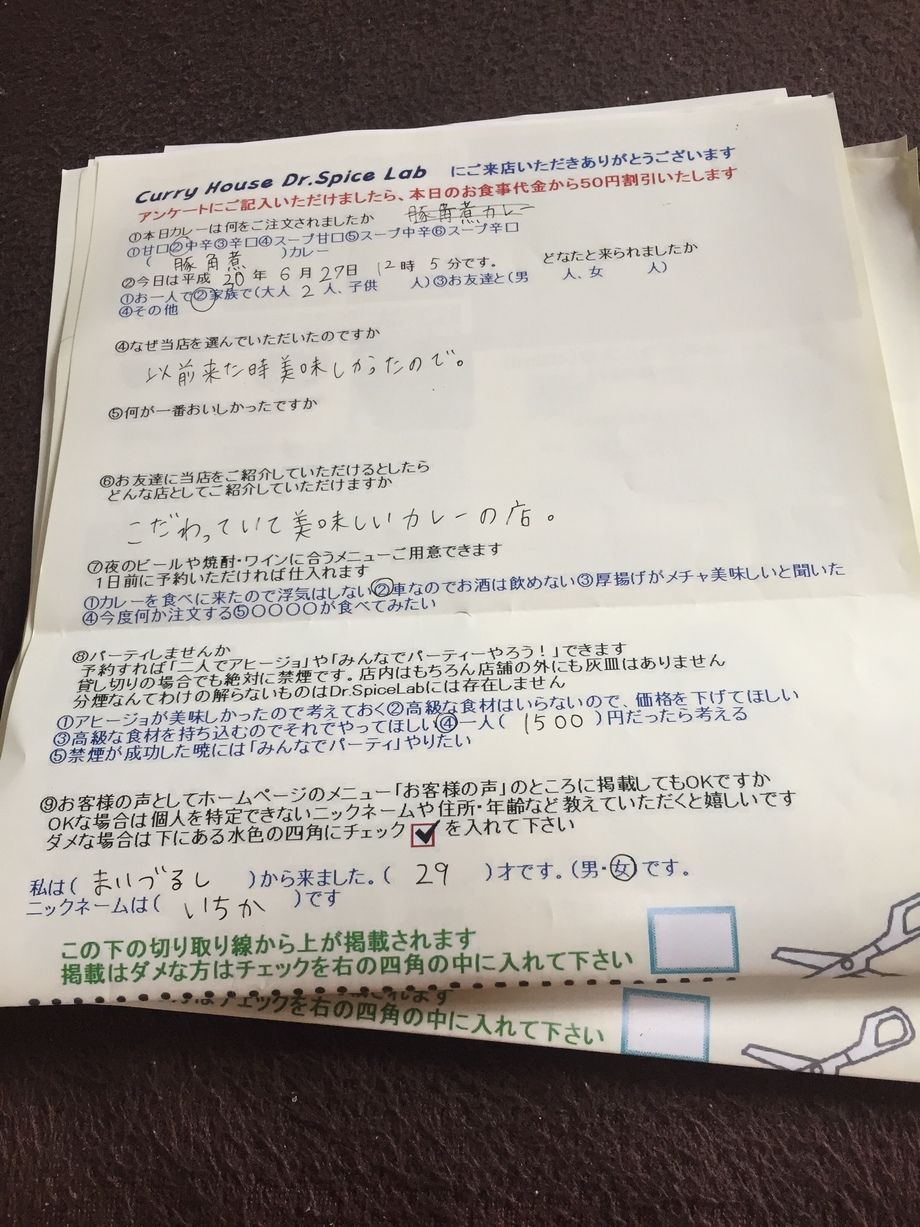 Curry House Dr.Spice Lab にご来店いただきありがとうございます
アンケートにご記入いただけましたら、本日のお食事代金から50円割引いたします
①本日カレーは何をご注文されましたか 豚角煮カレー
①甘口②中辛③辛口④スープ甘口⑤スープ中辛⑥スープ辛口
( 豚角煮 )カレー
②今日は平成 20 年 6 月 29日 12時 5分です。 どなたと来られましたか
①お一人で②家族で(大人 2 人、子供 人)③お友達と(男 人、女 人)
④その他
④なぜ当店を選んでいただいたのですか
以前来た時美味しかったので。
⑤何が一番おいしかったですか
⑥お友達に当店をご紹介していただけるとしたら
どんな店としてご紹介していただけますか
こだわっていて美味しいカレーの店。
⑦夜のビールや焼酎・ワインに合うメニューご用意できます
1日前に予約いただければ仕入れます
①カレーを食べに来たので浮気はしない②車なのでお酒は飲めない③厚揚げがメチャ美味しいと聞いた
④今度何か注文する⑤〇〇〇〇が食べてみたい
⑧パーティしませんか
予約すれば「二人でアヒージョ」や「みんなでパーティーやろう!」できます
貸し切りの場合でも絶対に禁煙です。店内はもちろん店舗の外にも灰皿はありません
分煙なんてわけの解らないものはDr.SpiceLabには存在しません
①アヒージョが美味しかったので考えておく②高級な食材はいらないので、価格を下げてほしい
③高級な食材を持ち込むのでそれでやってほしい④一人( 1500 )円だったら考える
⑤禁煙が成功した暁には「みんなでパーティ」やりたい
⑨お客様の声としてホームページのメニュー「お客様の声」のところに掲載してもOKですか
OKな場合は個人を特定できないニックネームや住所・年齢など教えていただくと嬉しいです
ダメな場合は下にある水色の四角にチェック を入れて下さい
私は( まいづるし )から来ました。( 29 )才です。(男・女)です。
ニックネームは( いちか )です
この下の切り取り線から上が掲載されます
掲載はダメな方はチェックを右の四角の中に入れて下さい
チェックを右の四角の中に入れて下さい